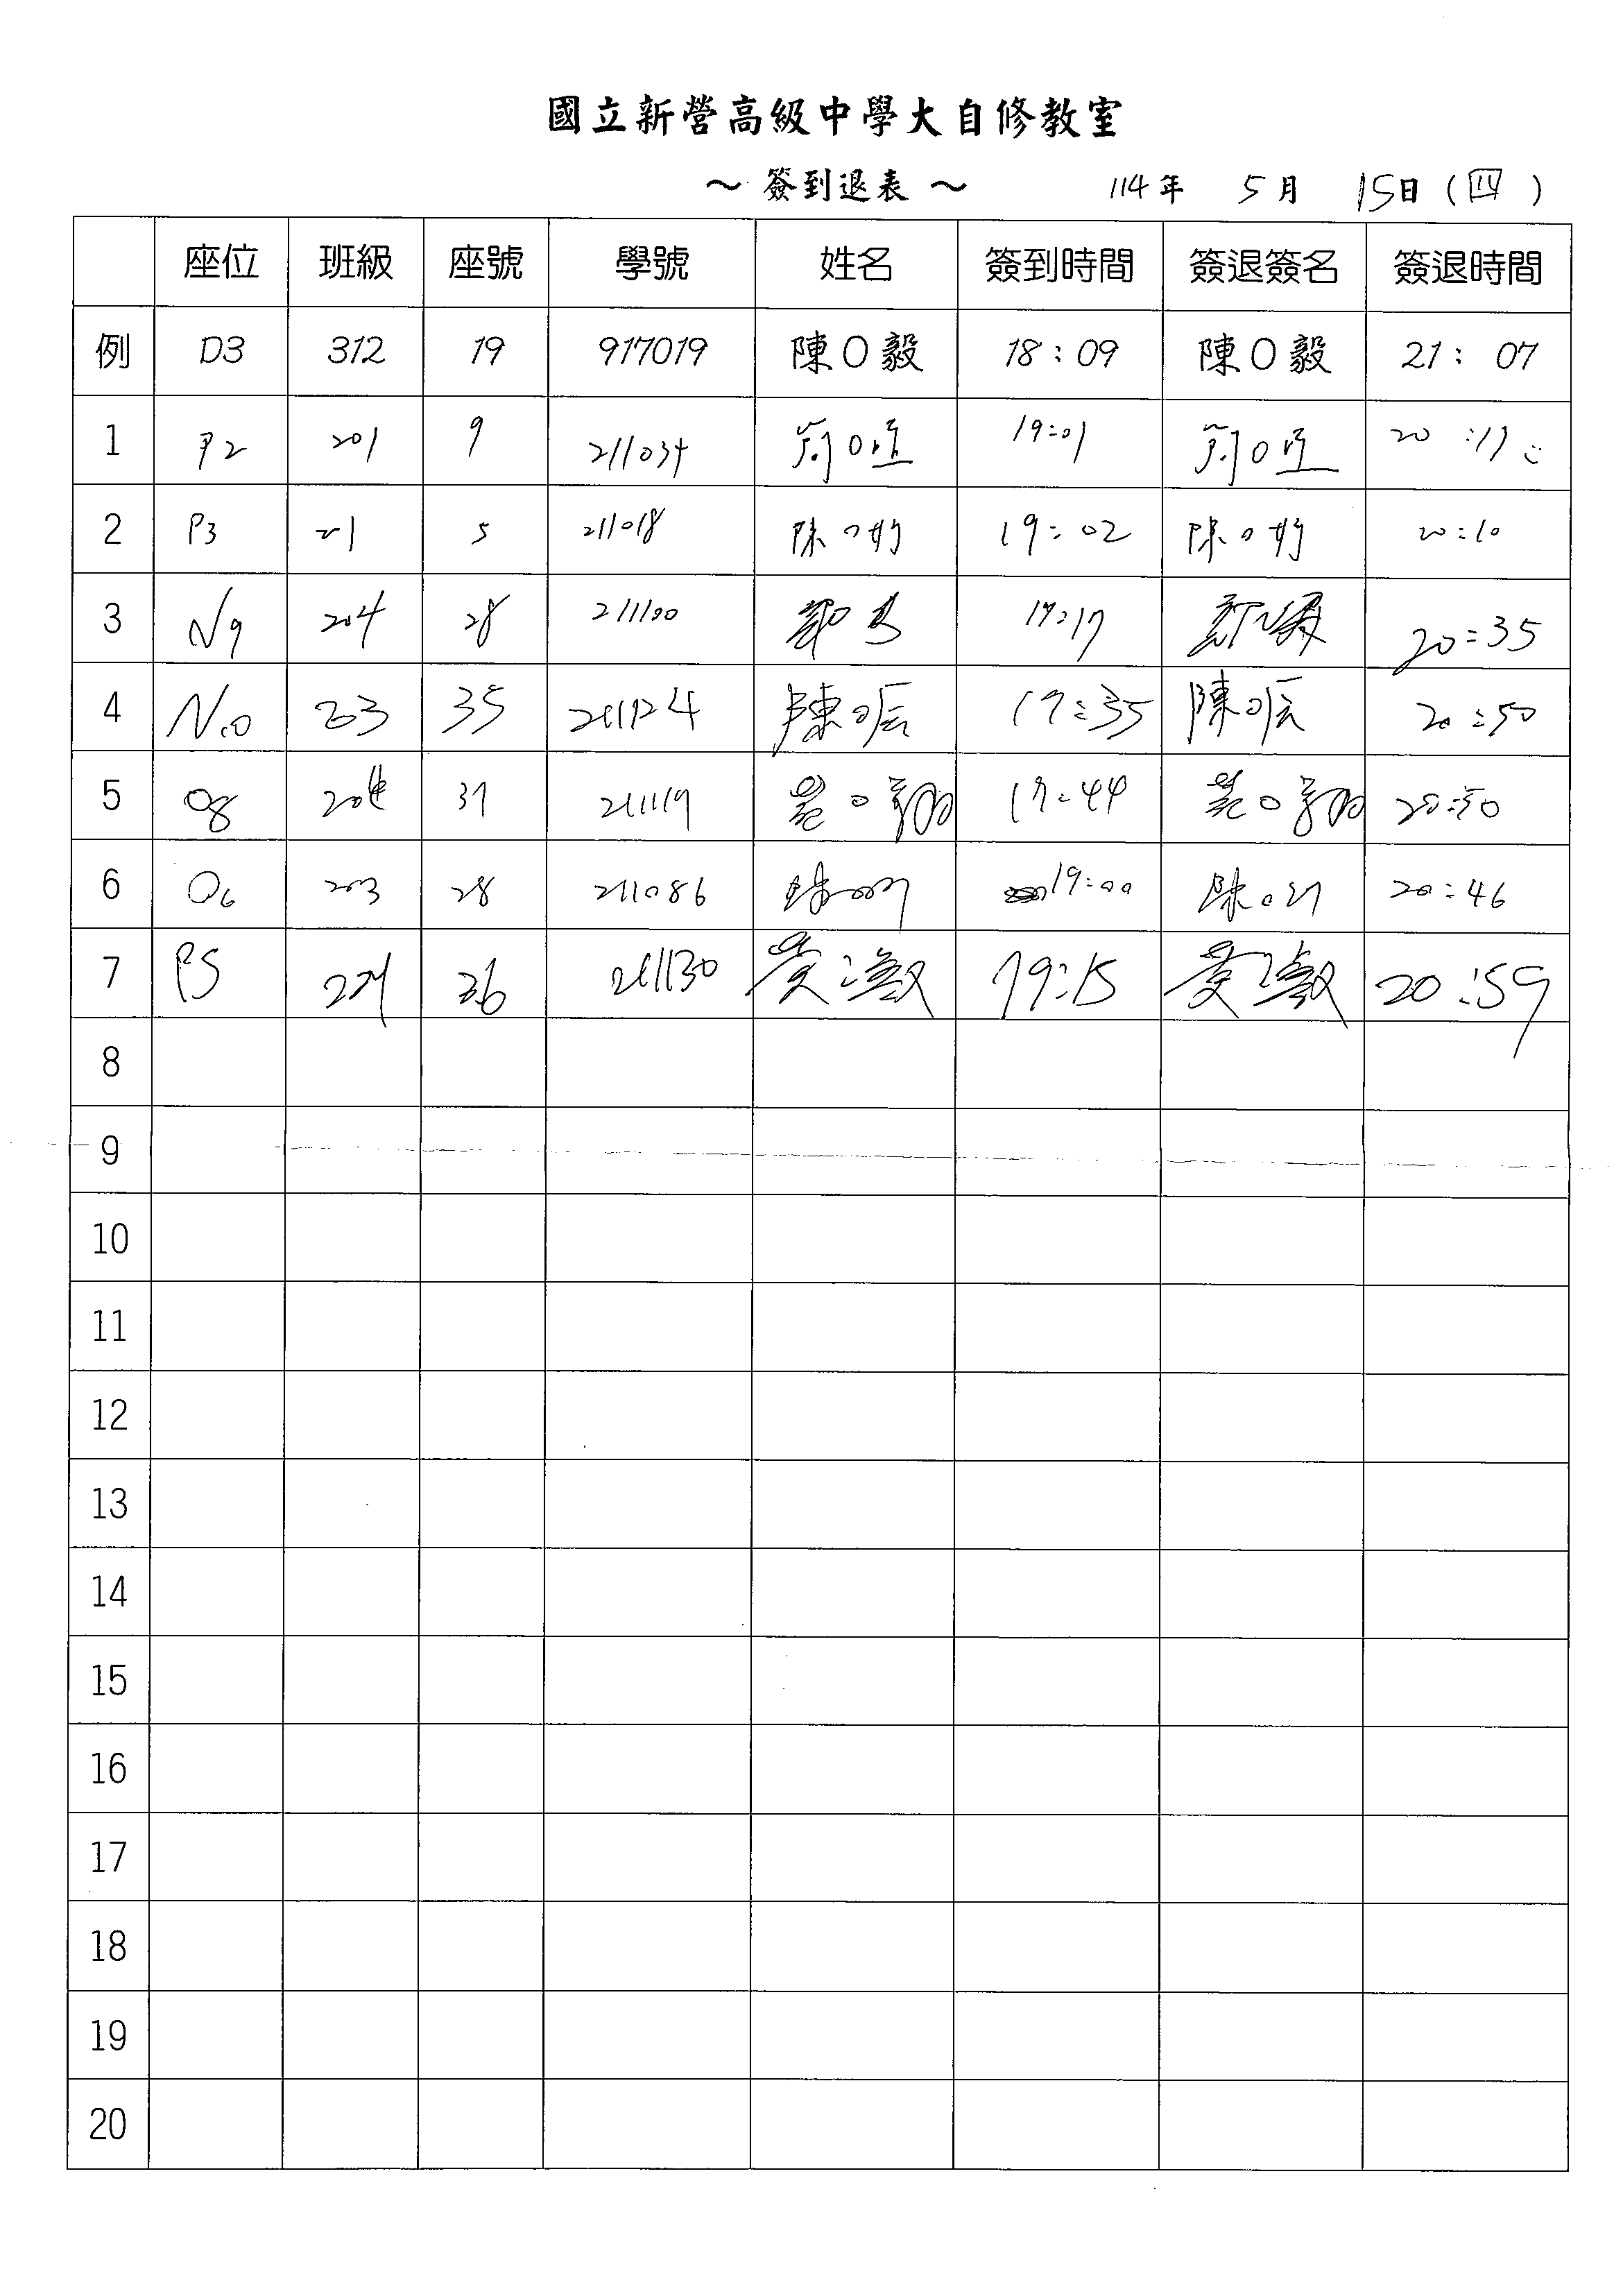 國立新營高級中學大自修教室
～ 簽到退表 ～ 114年 5月 15日(四)
座位 班級 座號 學號 姓名 簽到時間 簽退簽名 簽退時間
例 D3 312 19 917019 陳O毅 18:09 陳O毅 21:07
1 P2 201 9 211034 19:01 20:
2 P3 5 211018 陳O 19:02 陳O 20:10
3 N9 204 28 211100 20:35
4 N10 203 35 211124 陳O 17:35 陳O 20:50
5 O8 204 211119 17:44 20:50
6 O6 203 28 211086 陳O 19:00 陳O 20:46
7 P5 204 36 211130 黃 19:15 黃 20:59
8
9
10
11
12
13
14
15
16
17
18
19
20